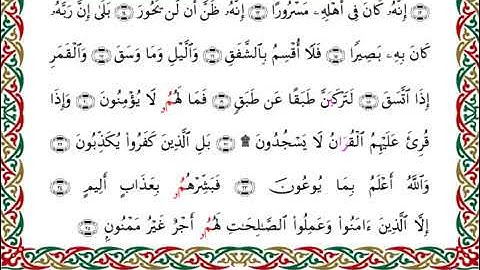 إِنَّهُۥ كَانَ فِىٓ أَهْلِهِۦ مَسْرُورًا إِنَّهُۥ ظَنَّ أَن لَّن يَحُورَ بَلَىٰٓ إِنَّ رَبَّهُۥ
كَانَ بِهِۦ بَصِيرًا فَلَآ أُقْسِمُ بِٱلشَّفَقِ وَٱلَّيْلِ وَمَا وَسَقَ وَٱلْقَمَرِ
إِذَا ٱتَّسَقَ لَتَرْكَبَنَّ طَبَقًا عَن طَبَقٍ فَمَا لَهُمُۥ لَا يُؤْمِنُونَ وَإِذَا
قُرِئَ عَلَيْهِمُ ٱلْقُرَانُ لَا يَسْجُدُونَ ۩ بَلِ ٱلَّذِينَ كَفَرُوا۟ يُكَذِّبُونَ
وَٱللَّهُ أَعْلَمُ بِمَا يُوعُونَ فَبَشِّرْهُمُۥ بِعَذَابٍ أَلِيمٍ
إِلَّا ٱلَّذِينَ ءَامَنُوا۟ وَعَمِلُوا۟ ٱلصَّـٰلِحَـٰتِ لَهُمُۥٓ أَجْرٌ غَيْرُ مَمْنُونٍۭ